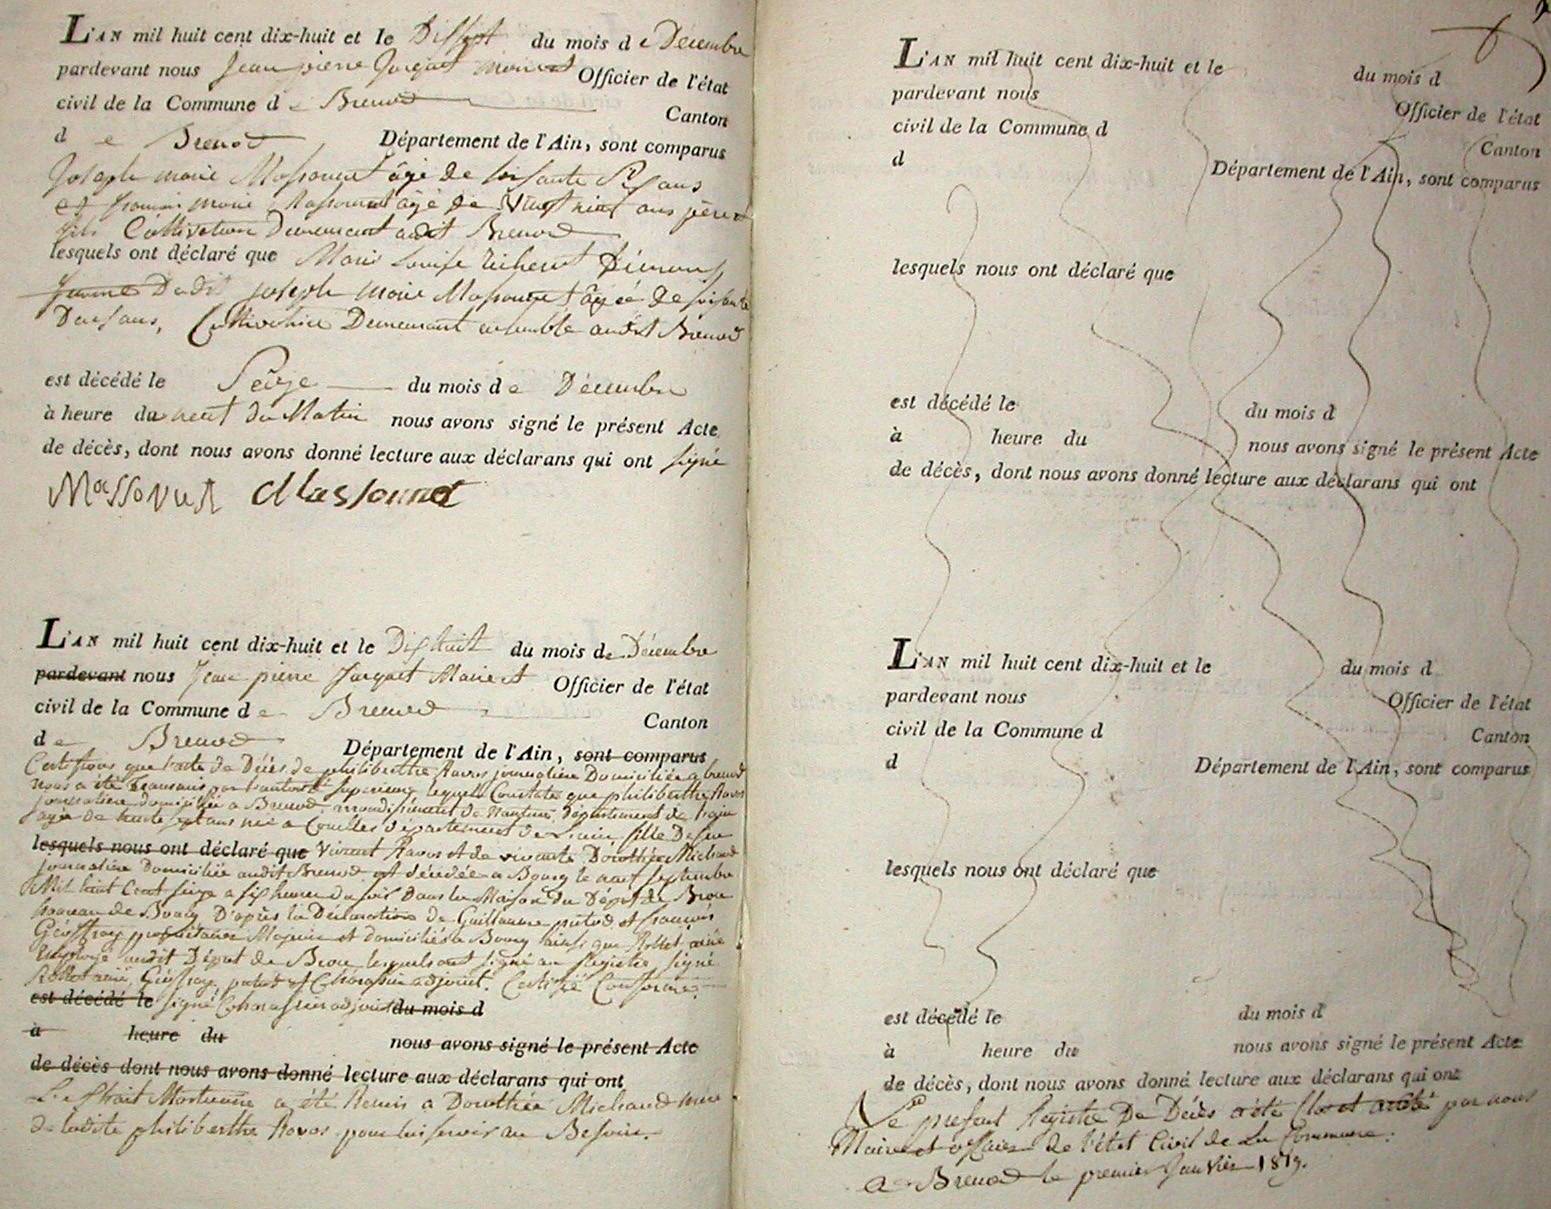 L'AN mil huit cent dix-huit et le Dissept du mois de Décembre
pardevant nous Jean pierre Jargait maire et Officier de l'état
civil de la Commune de Brenod
Canton
de Brenod Département de l'Ain, sont comparus
Joseph marie Massonnet âgé de soisante Six ans
et marie Massonnet âgé de vingt huit ans père et
fils Cultivateurs Demeurant audit Brenod
lesquels ont déclaré que Marie Louise
femme Dudit Joseph Marie Massonnet âgée de soisante
Deux ans, Cultivatrice Demeurant ensemble audit Brenod
est décédé le Seize du mois de Décembre
à heure du neuf du Matin nous avons signé le présent Acte
de décès, dont nous avons donné lecture aux déclarans qui ont signé
Massonnet Massonnet
L'AN mil huit cent dix-huit et le Dishuit du mois de Décembre
pardevant nous Jean pierre Jargait Maire et Officier de l'état
civil de la Commune de Brenod
Canton
de Brenod Département de l'Ain, sont comparus
Certifions que l'acte de Décès de philiberthe Ravos journalière Domiciliée a brenod
nous a été par supérieur lequel Constate que philiberthe Ravos
journalière domiciliée a Brenod arrondissement de Nantua département de l'ain
agée de trente sept ans née a département de l'ain fille De feu
lesquels nous ont déclaré que Vincent Ravos et de vivante Dorothée Michaud
journalière Domiciliée audit Brenod est décédée a Bourg le neuf septembre
Mil huit Cent seize a six heures du soir dans la Maison du Dépôt de Brou
hameau de Bourg D'après la Déclaration de Guillaume putod et françois
Géoffray Majeurs et domiciliés a Bourg ainsi que Rollet ainé
Employé audit Dépôt de Brou lesquels ont signé au Registre signé
Rollet ainé, Géoffray, putod et adjoint. Certifié Conforme.
est décédé le signé adjoint du mois d
à heure du
nous avons signé le présent Acte
de décès dont nous avons donné lecture aux déclarans qui ont
L'Extrait Mortuaire a été Remis a Dorothée Michaud mère
de ladite philiberthe Ravos pour lui servir au Besoin.
L'AN mil huit cent dix-huit et le du mois d
pardevant nous Officier de l'état
civil de la Commune d
Canton
d Département de l'Ain, sont comparus
lesquels nous ont déclaré que
est décédé le du mois d
à heure du nous avons signé le présent Acte
de décès, dont nous avons donné lecture aux déclarans qui ont
L'AN mil huit cent dix-huit et le du mois d
pardevant nous Officier de l'état
civil de la Commune d
Canton
d Département de l'Ain, sont comparus
lesquels nous ont déclaré que
est décédé le du mois d
à heure du nous avons signé le présent Acte
de décès, dont nous avons donné lecture aux déclarans qui ont
Le présent Registre De Décès a été Clos et arrêté par nous
Maire et officier de l'état Civil de La Commune.
a Brenod le premier Janvier 1819.